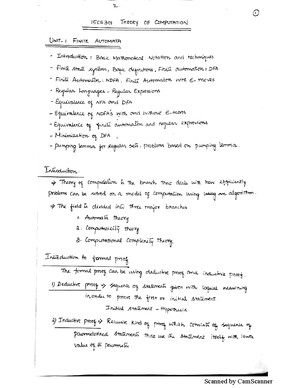 2
1
15CS301 THEORY OF COMPUTATION
UNIT-1 FINITE AUTOMATA
- Introduction: Basic Mathematical Notation and techniques
- Finite state system, Basic definitions, Finite automaton: DFA
- Finite Automaton: NDFA, Finite Automaton with ε-moves
- Regular Languages - Regular Expressions
- Equivalence of NFA and DFA
- Equivalence of NDFA's with and without ε-moves
- Equivalence of finite automaton and regular expressions
- Minimization of DFA
- Pumping lemma for Regular sets: problems based on pumping lemma.
Introduction
→ Theory of computation is the branch that deals with how efficiently
problems can be solved on a model of computation using an algorithm.
→ The field is divided into three major branches
1. Automata Theory
2. Computability theory
3. Computational Complexity Theory
Introduction to formal proof
The formal proof can be using deductive proof and inductive proof.
1) Deductive proof → sequence of statement given with logical reasoning
inorder to prove the first or initial statement
Initial statement - Hypothesis
2) Inductive proof → Recursive kind of proof which consists of sequence of
parameterized statements that use the statement itself with lower
value of parameter
Scanned by CamScanner